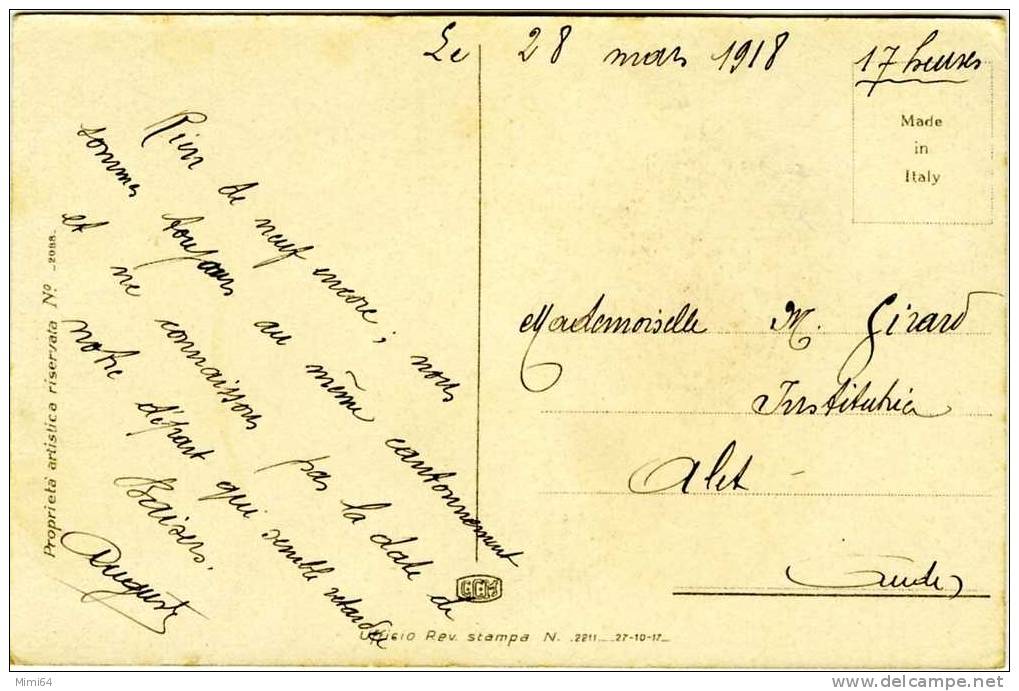 Le 28 mars 1918 17 heures
Made
in
Italy
Rien de neuf encore, nous
sommes toujours au même cantonnement
et ne connaissons pas la date de
notre départ qui semble retardé
Baisers.
Auguste
Mademoiselle M. Girard
Institutrice
Alet
Aude
Proprietà artistica riservata No. 2088-
GGM
Ufficio Rev. stampa N. 2211 27-10-17
Mimi64
www.delcampe.net